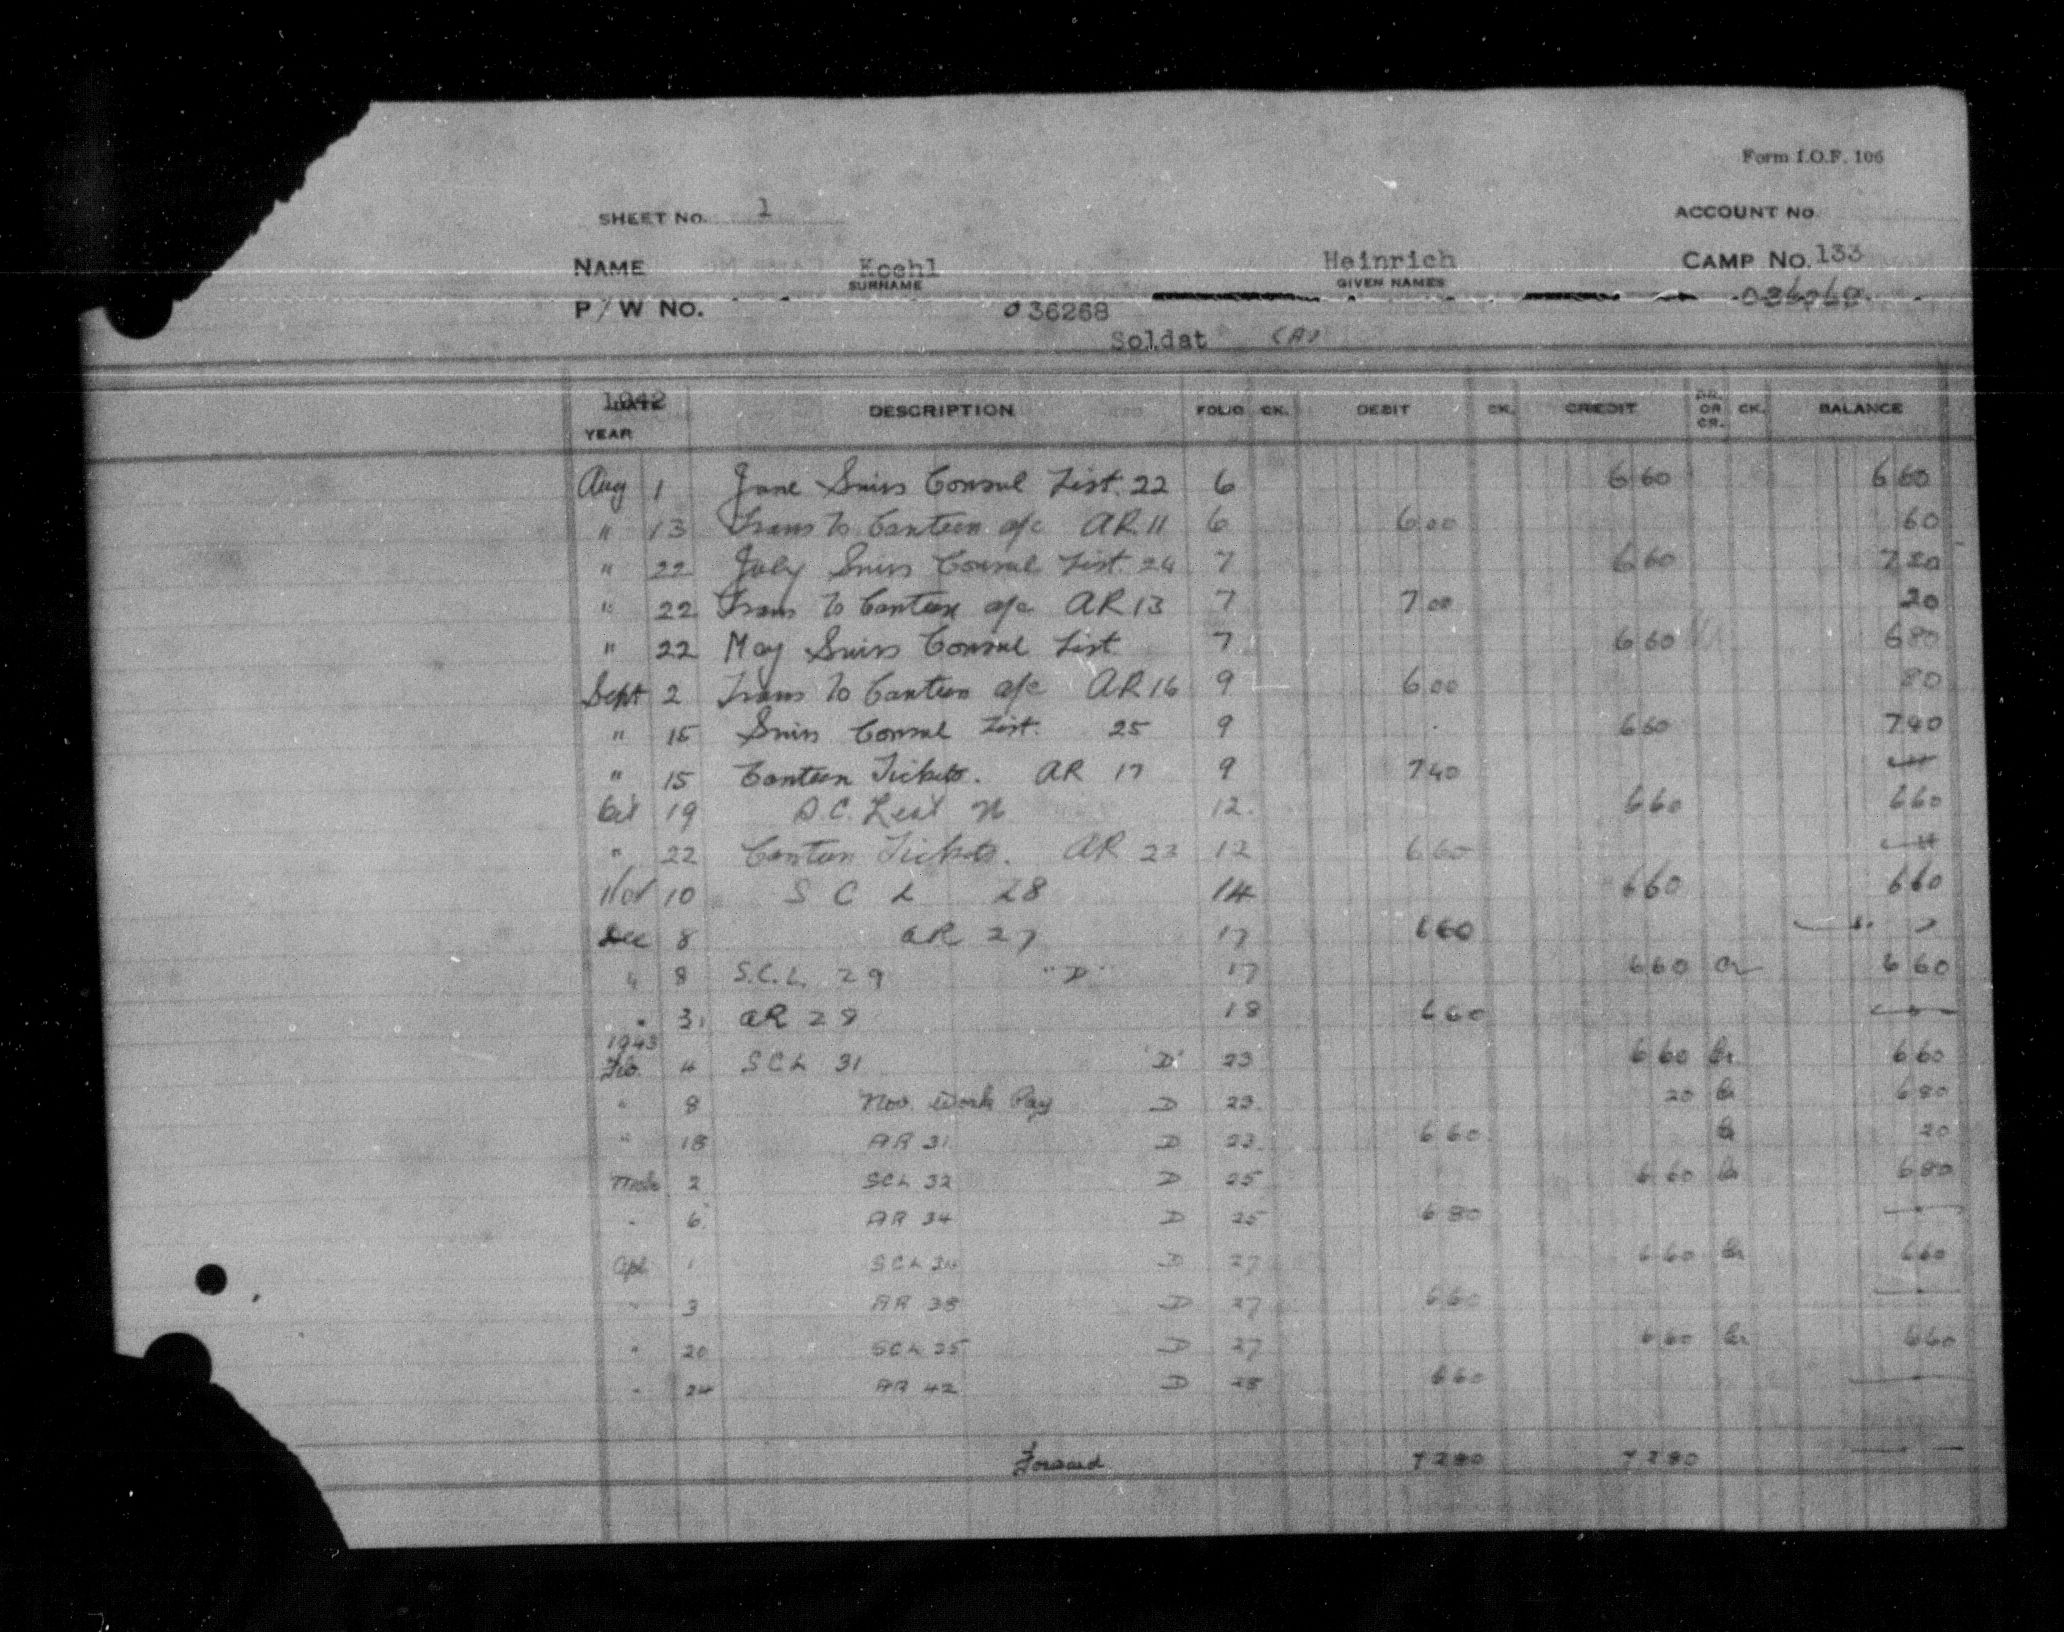 Form I.O.F. 106
SHEET No. 1 ACCOUNT No.
NAME Koehl Heinrich CAMP No. 133
SURNAME GIVEN NAMES
P/W No. 036268 036268
Soldat
1942 DATE DESCRIPTION FOLIO CK. DEBIT CK. CREDIT DR. OR CR. CK. BALANCE
YEAR
Aug 1 June Swiss Consul List 22 6 6 60 6 60
" 13 Trans to Canteen a/c AR 11 6 6 00 60
" 22 July Swiss Consul List 24 7 6 60 7 20
" 22 Trans to Canteen a/c AR 13 7 7 00 20
" 22 May Swiss Consul List 7 6 60 6 80
Sept 2 Trans to Canteen a/c AR 16 9 6 00 80
" 15 Swiss Consul List. 25 9 6 60 7 40
" 15 Canteen Tickets. AR 17 9 7 40
Oct 19 S.C. List 12. 6 60 6 60
" 22 Canteen Tickets. AR 23 12 6 60
Nov 10 S C L 28 14 6 60 6 60
Dec 8 AR 27 17 6 60
" 8 S.C.L. 29 "D" 17 6 60 Cr 6 60
" 31 AR 29 18 6 60
1943
Feb. 4 SCL 31 "D" 23 6 60 Cr 6 60
" 8 Nov. Work Pay D 23. 20 Cr 6 80
" 18 AR 31 D 23. 6 60 Cr 20
Mch 2 SCL 32 D 25 6 60 Cr 6 80
" 6 AR 34 D 25 6 80
Apl 1 SCL 34 D 27 6 60 Cr 6 60
" 3 AR 38 D 27 6 60
" 20 SCL 35 D 27 6 60 Cr 6 60
" 24 AR 42 D 28 6 60
Forward 72 80 72 80